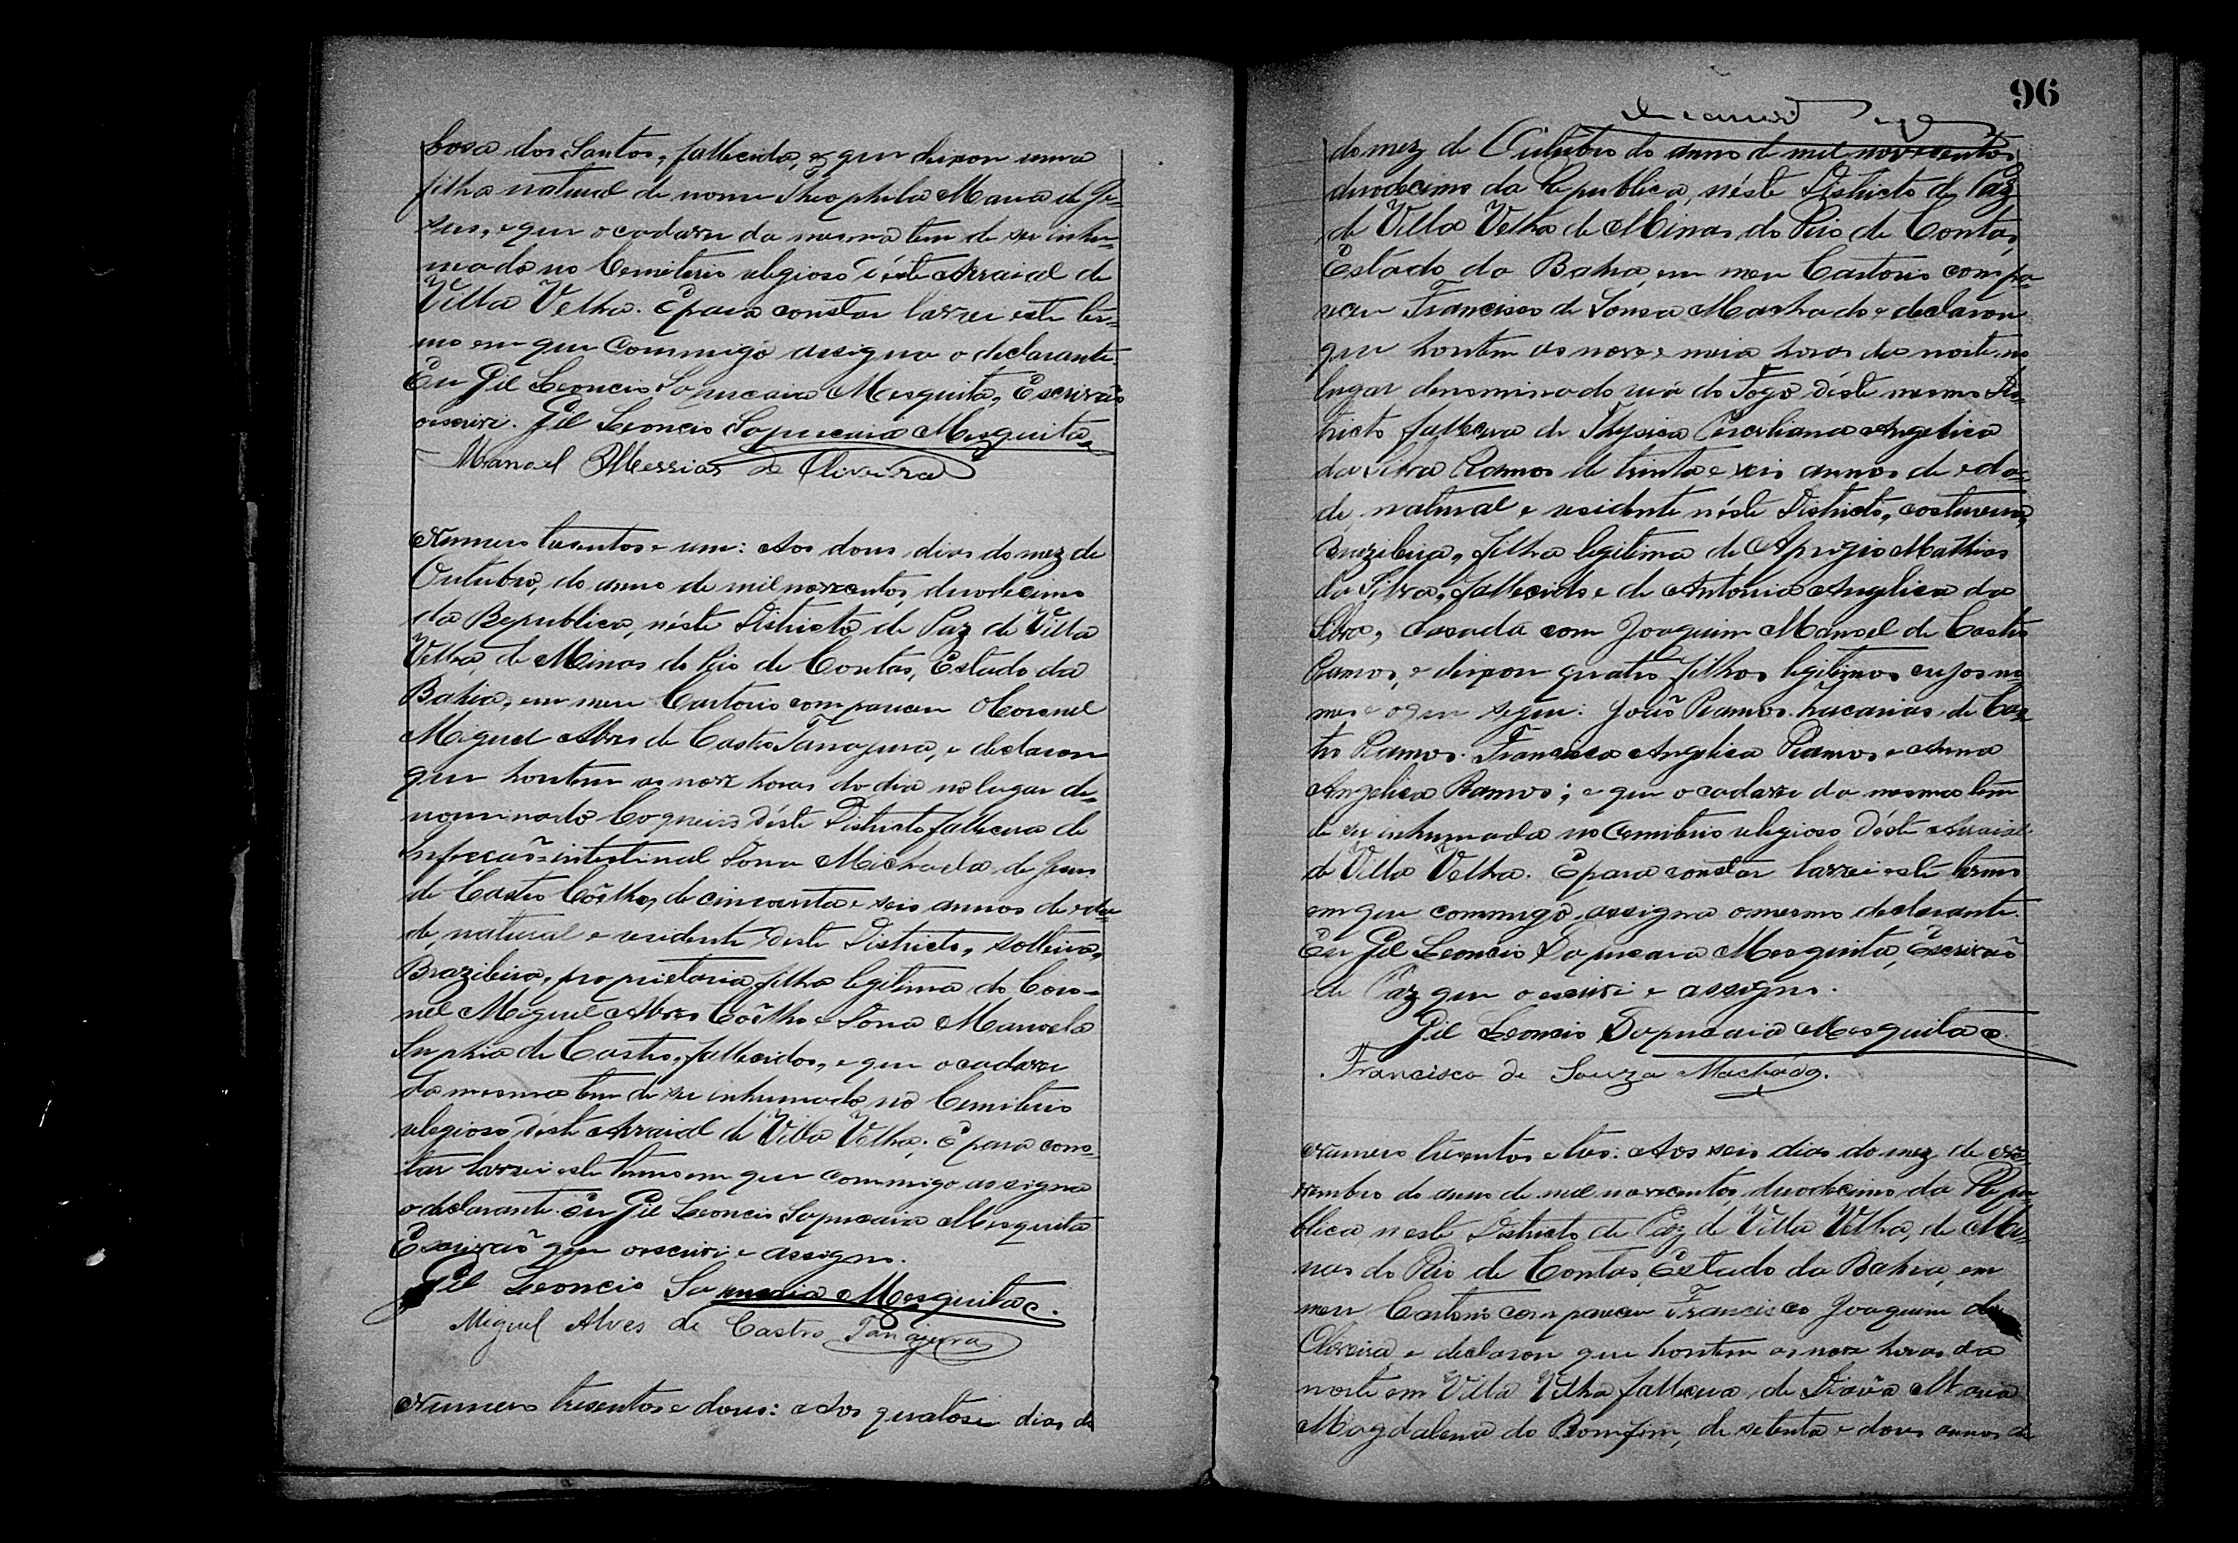 bosa dos Santos, fallecida, e que deixou uma
filha natural de nome Theophila Maria de Je-
sus, e que o cadaver da mesma tem de ser inhu-
mado no Cemiterio religioso d'éste Arraial de
Villa Velha. E para constar lavrei este ter-
mo em que commigo assigna o declarante
Eu Gil Leoncio Sapucaia Mesquita, Escrivão
o escrivi. Gil Leoncio Sapucaia Mesquita
Manoel Messias de Oliveira
Numero tresentos e um: Aos dous dias do mez de
Outubro, do anno de mil novecentos, duodecimo
da Republica, néste Districto de Paz de Villa
Velha, de Minas do Rio de Contas, Estado da
Bahia, em meu Cartorio compareceu o Coronel
Miguel Alves de Castro Tanajura, e declarou
que hontem as nove horas do dia no lugar de-
nominado Coqueiro d'éste Districto falleceu de
Infecção intestinal Dona Michaela de Jesus
de Castro Coêlho, de cincoenta e seis annos de eda-
de, natural e residente deste Districto, solteira,
Brazileira, proprietaria, filha legitima do Coro-
nel Miguel Alves Coêlho e Dona Manoela
de Castro, fallecidos, e que o cadaver
da mesma tem de ser inhumado no Cemiterio
religioso d'éste Arraial de Villa Velha; E para cons-
tar lavrei este termo em que commigo assigna
o declarante. Eu Gil Leoncio Sapucaia Mesquita
Escrivão que o escrivi e assigno.
Gil Leoncio Sapucaia Mesquita
Miguel Alves de Castro Tanajura
Numero tresentos e dous: Aos quatorse dias do
96
do mez de Outubro do anno de mil novecentos,
duodecimo da Republica, néste Districto de Paz
de Villa Velha de Minas do Rio de Contas,
Estado da Bahia, em meu Cartorio compa-
receu Francisco de Sousa Machado e declarou
que hontem as nove e meia horas da noite no
lugar denominado rua do Fogo d'éste mesmo Dis-
tricto falleceu de Thysica Angelica
da Silva Ramos de trinta e seis annos de eda-
de, natural e residente néste Districto, costureira,
Brazileira, filha legitima de Aprigio Mathias
da Silva, fallecido e de Antonia Angelica da
Silva, casada com Joaquim Manoel de Castro
Ramos, e deixou quatro filhos legitimos cujos no-
mes e o que segue: João Ramos. Zacarias de Cas-
tro Ramos. Francisca Angelica Ramos e Anna
Angelica Ramos; e que o cadaver da mesma tem
de ser inhumada no Cemiterio religioso d'éste Arraial
de Villa Velha. E para constar lavrei este termo
em que commigo assigna o mesmo declarante.
Eu Gil Leoncio Sapucaia Mesquita, Escrivão
de Paz que o escrivi e assigno.
Gil Leoncio Sapucaia Mesquita
Francisco de Souza Machádo.
Numero tresentos e tres: Aos seis dias do mez de No-
vembro do anno de mil novecentos, duodecimo da Repu-
blica, neste Districto de Paz de Villa Velha, de Mi-
nas do Rio de Contas, Estado da Bahia, em
meu Cartorio compareceu Francisco Joaquim de
Oliveira e declarou que hontem as nove horas da
noite em Villa Velha falleceu de Maria
Magdalena do Bomfim, de setenta e dous annos de